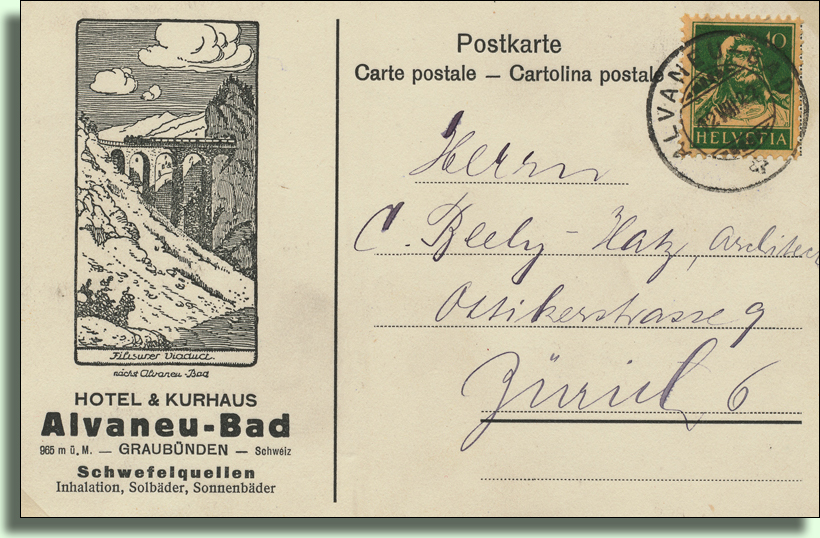 Filisurer Viaduct.
nächst Alvaneu-Bad
HOTEL & KURHAUS
Alvaneu-Bad
965 m ü. M. — GRAUBÜNDEN — Schweiz
Schwefelquellen
Inhalation, Solbäder, Sonnenbäder
Postkarte
Carte postale — Cartolina postale
10
HELVETIA
ALVANEU BAD
Herrn
C. Architect
Ottikerstrasse 9
Zürich 6